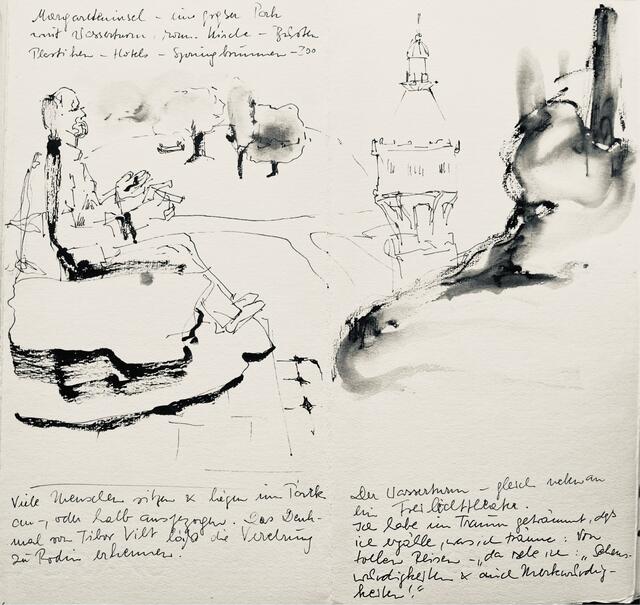 Margareteninsel – ein großer Park
mit Wasserturm, rom. Kirche – Büsten
Plastiken – Hotels – Springbrunnen – Zoo
Viele Menschen sitzen & liegen im Park
an-, oder halb ausgezogen. Das Denk-
mal von Tibor Vilt läßt die Verehrung
zu Rodin erkennen.
Der Wasserturm – gleich neben an
ein Freilichttheater.
Ich habe im Traum geträumt, daß
ich erzähle, was ich träume: Von
tollen Reisen – „da sehe ich: „Sehens-
würdigkeiten & auch Merkwürdig-
keiten!“